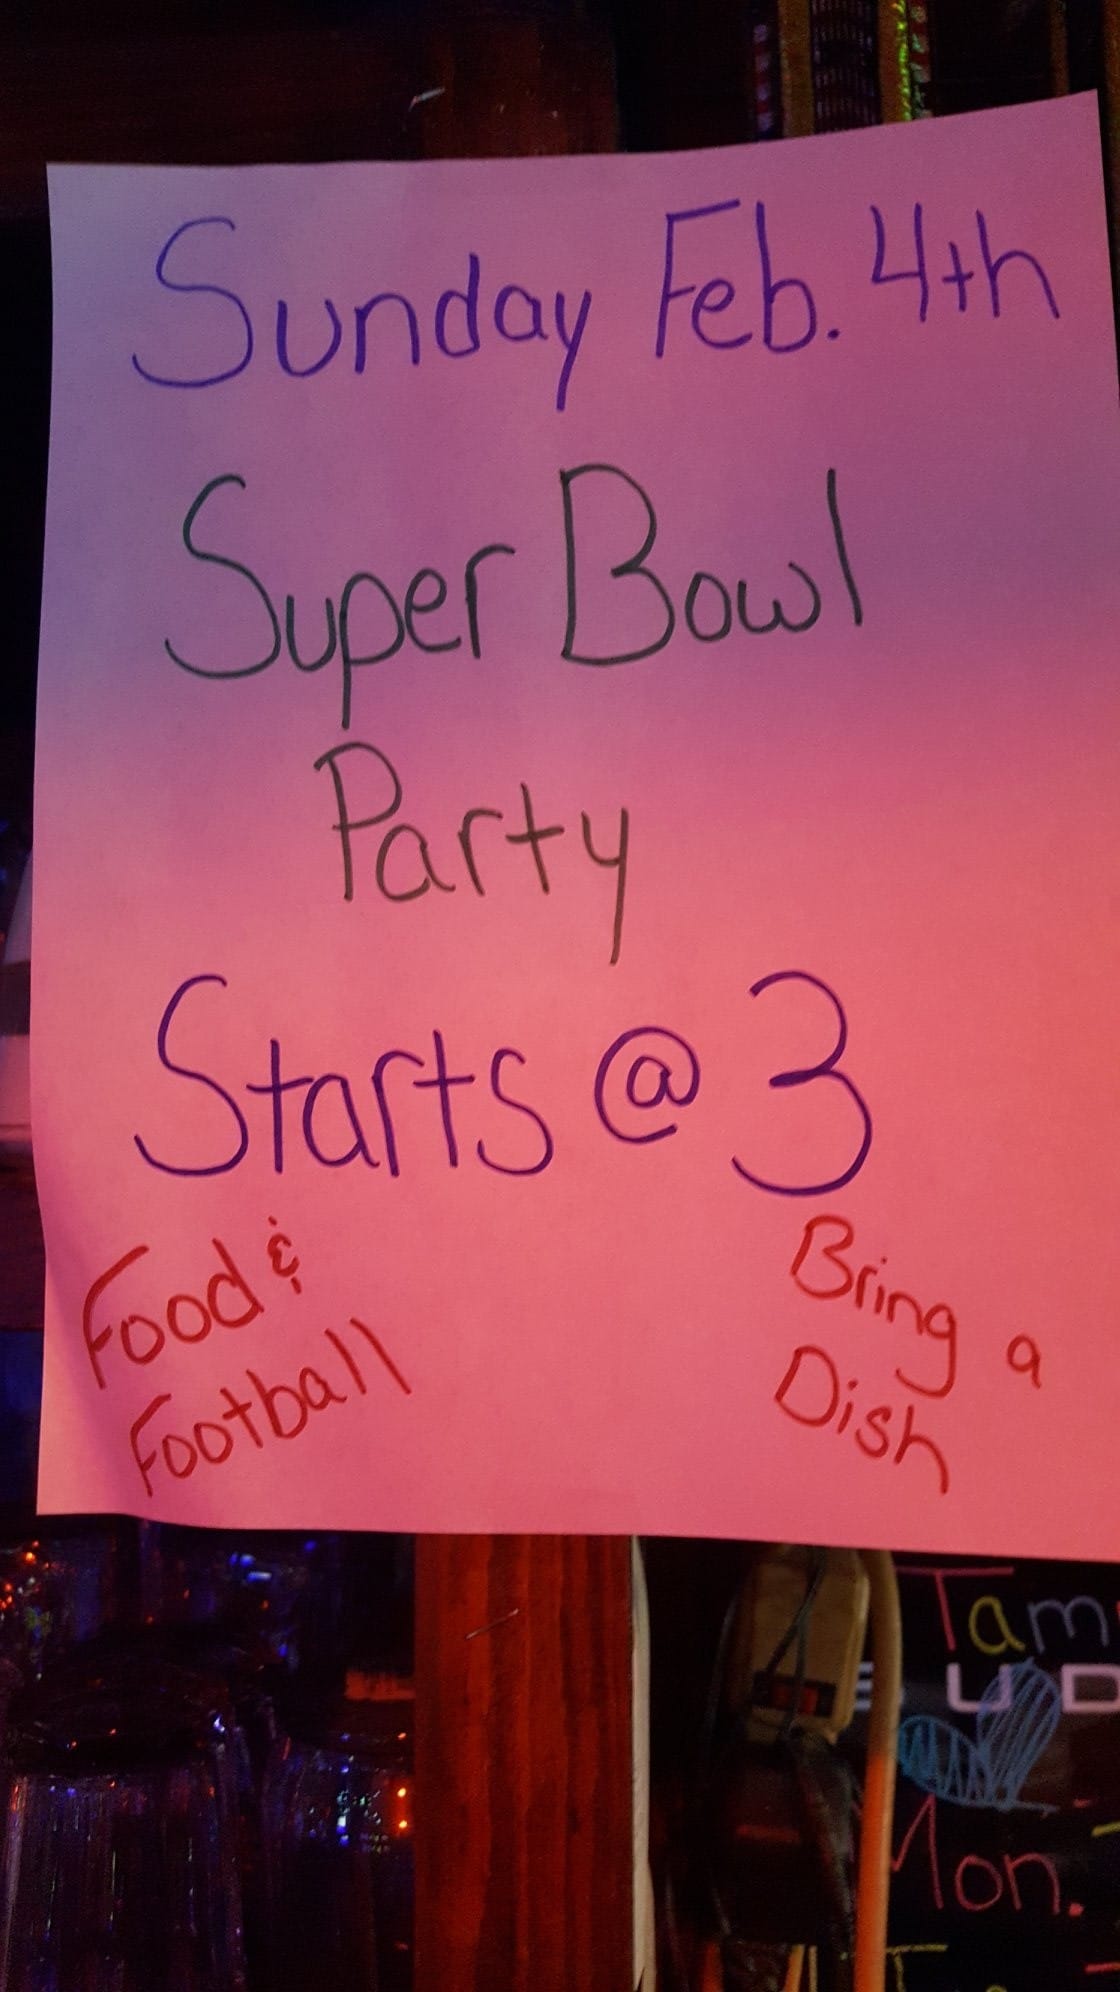 Sunday Feb. 4th
Super Bowl
Party
Starts @ 3
Food &
Football
Bring a
Dish
Mon.